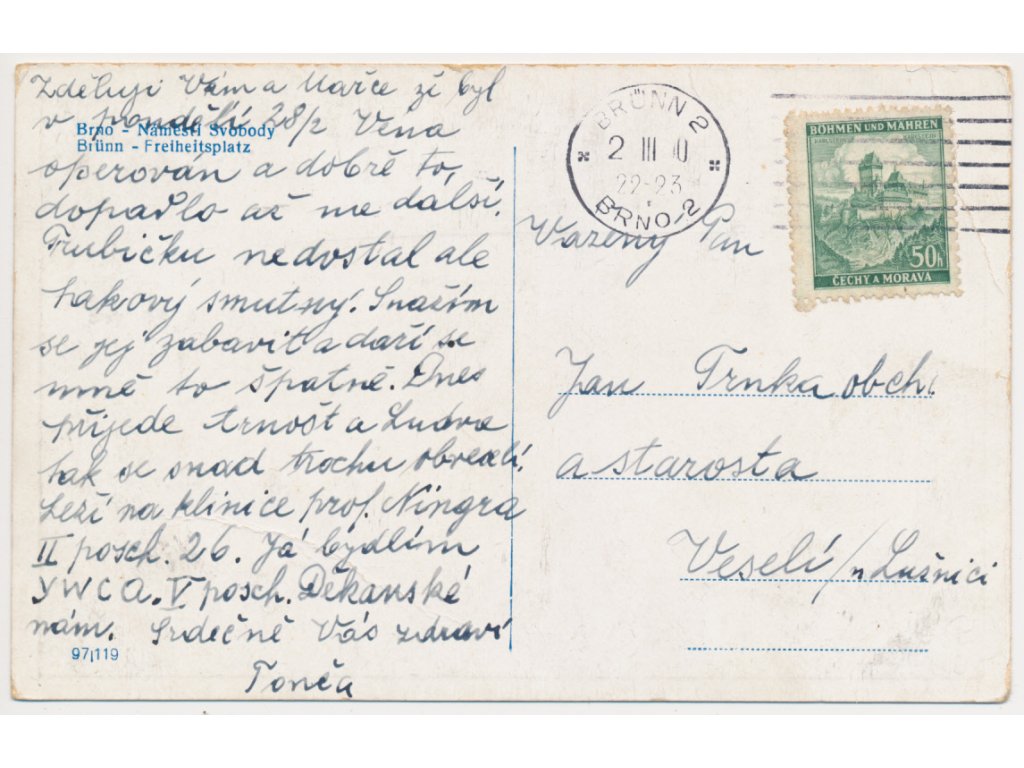 Zděluji Vám a Mařce že byl
v pondělí 28/2 Véna
Brno - Náměstí Svobody
Brünn - Freiheitsplatz
operován a dobře to,
dopadlo až na další.
Trubičku nedostal ale
takový smutný. Snažím
se jej zabavit a daří se
mně to špatně. Dnes
přijede a Luďva
tak se snad trochu obveselí.
Leží na klinice prof. Ningra
II posch. 26. Já bydlím
YWCA. V posch. Děkanské
nám. Srdečně Vás zdraví
97/119
Tonča
BRÜNN 2
2 III 0
22-23
BRNO-2
BÖHMEN UND MÄHREN
50h
ČECHY A MORAVA
Vážený Pan
Jan Trnka obch.
a starosta
Veselí/n Lušnici